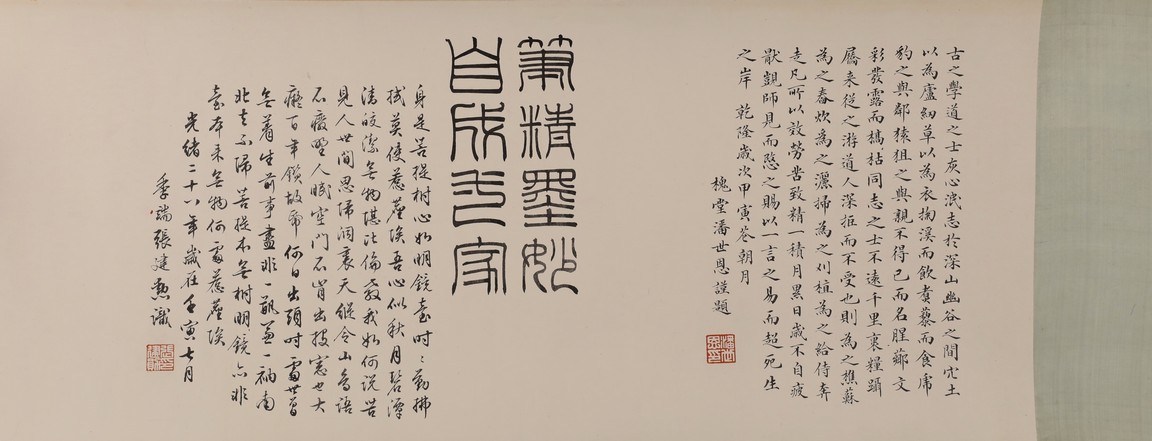 古之學道之士灰心泯志於深山幽谷之間穴土
以為廬紉草以為衣掬溪而飲煮藜而食虎
豹之與鄰猿狙之與親不得已而名腥薌文
彩發露而槁枯同志之士不遠千里裹糧躡
屩来從之游道人深拒而不受也則為之樵蘇
為之舂炊為之灑掃為之刈植為之給侍奔
走凡所以效勞苦致精一積月累日歲不自疲
猒覬師見而愍之賜以一言之易而超死生
之岸 乾隆歲次甲寅花朝月
槐堂潘世恩謹題
筆精墨妙
自成家
身是菩提樹心如明鏡臺時〻勤拂
拭莫使惹塵埃吾心似秋月碧潭
清皎潔無物堪比倫教我如何說苦
見人世間思歸洞裏天縱令山鳥語
不癈野人眠空門不肯出投窓也大
癡百年鑽故帋何日出頭時處世當
無着生前事盡非一瓶兼一衲南
北去不歸菩提本無樹明鏡亦非
臺本来無物何處惹塵埃
光緒二十八年歲在壬寅七月
季端張建勳識